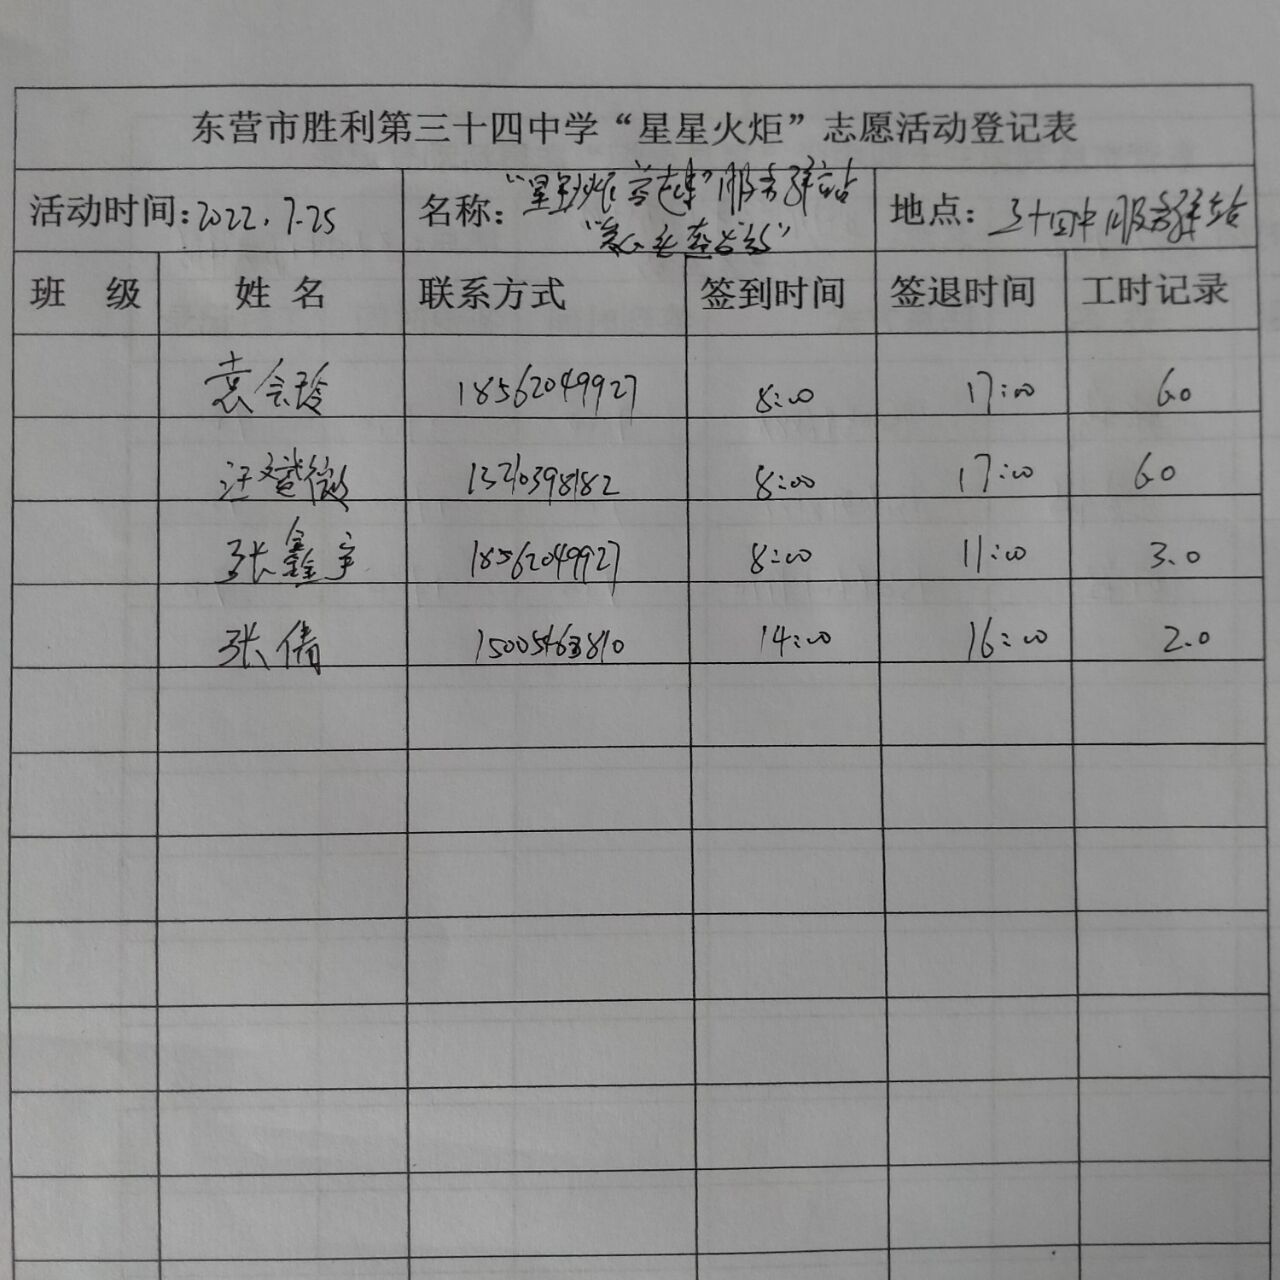 东营市胜利第三十四中学“星星火炬”志愿活动登记表
活动时间:2022.7.25 名称: 服务驿站 地点: 三十四中服务驿站
班 级 姓 名 联系方式 签到时间 签退时间 工时记录
袁会玲 18562049927 8:00 17:00 6.0
汪 微 8:00 17:00 6.0
张鑫宇 18562049927 8:00 11:00 3.0
张倩 15005463810 14:00 16:00 2.0